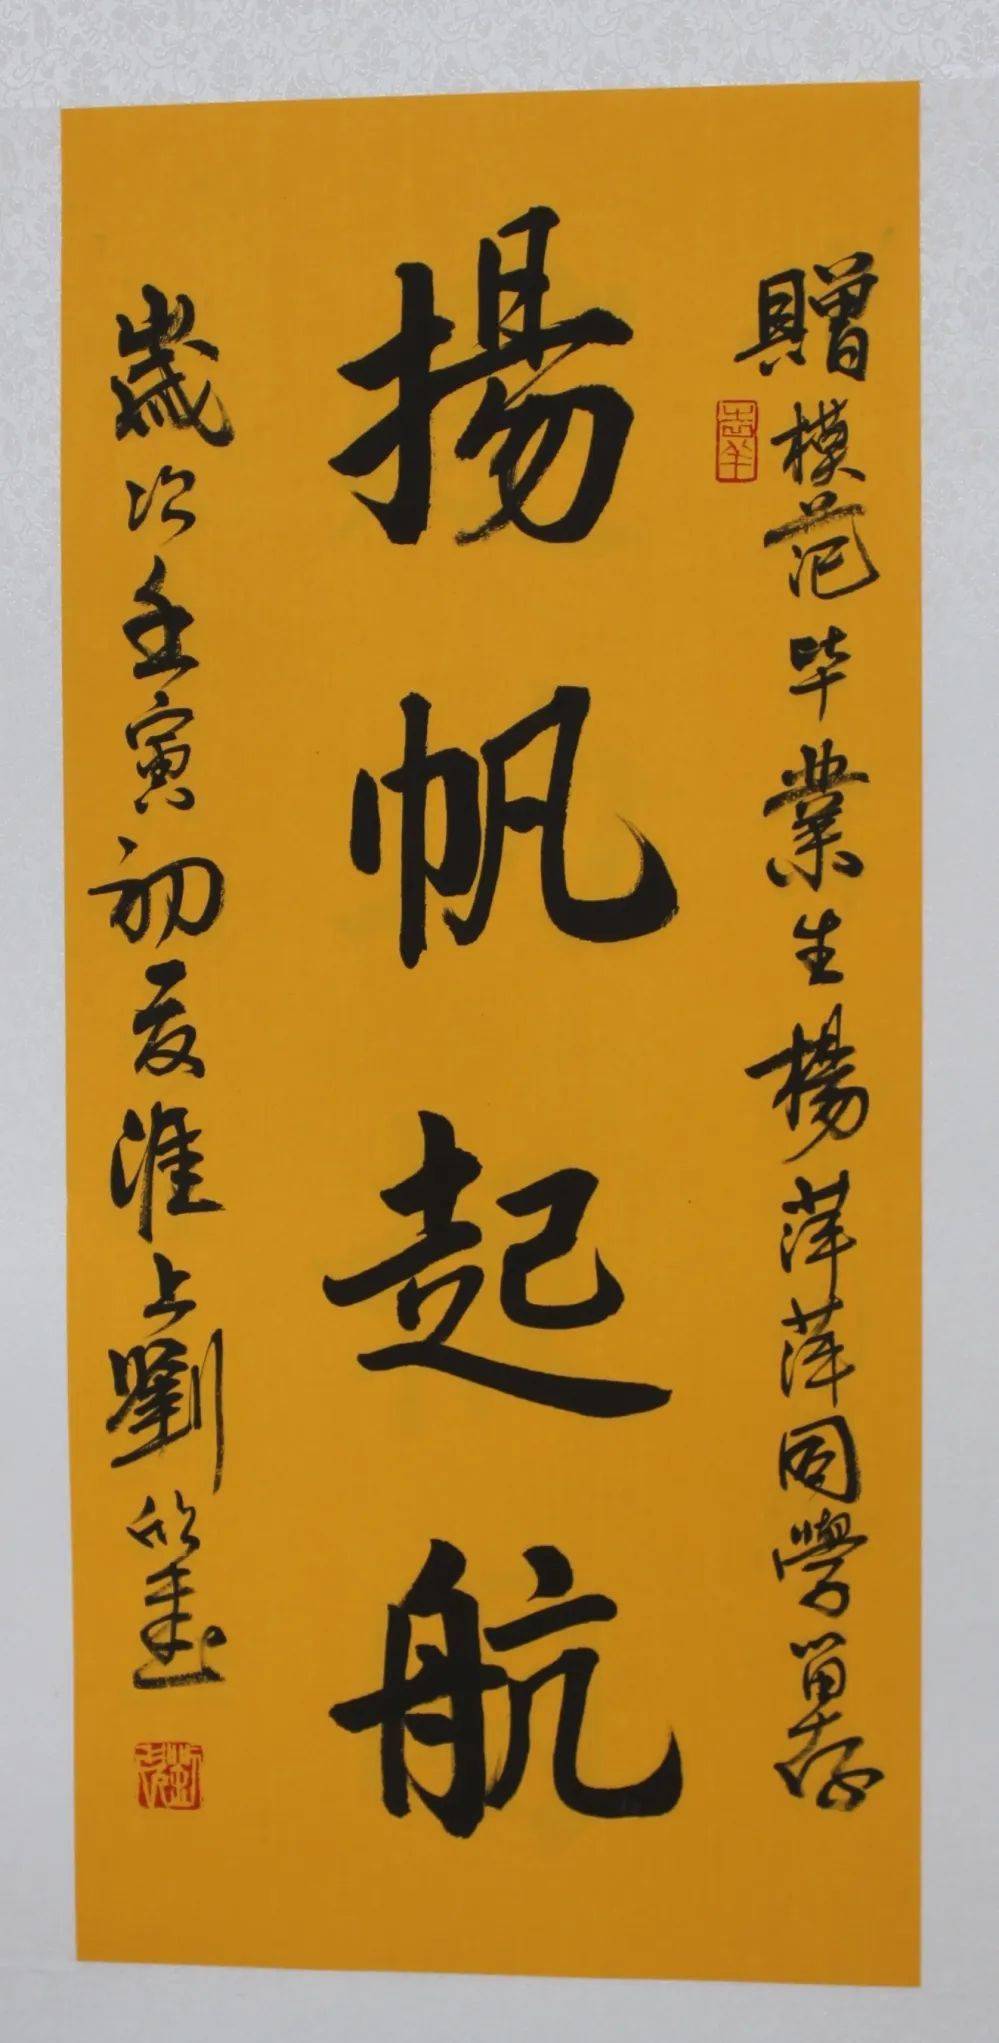 贈模范毕業生楊萍萍同學留存
揚帆起航
歲次壬寅初夏淮上劉欣書